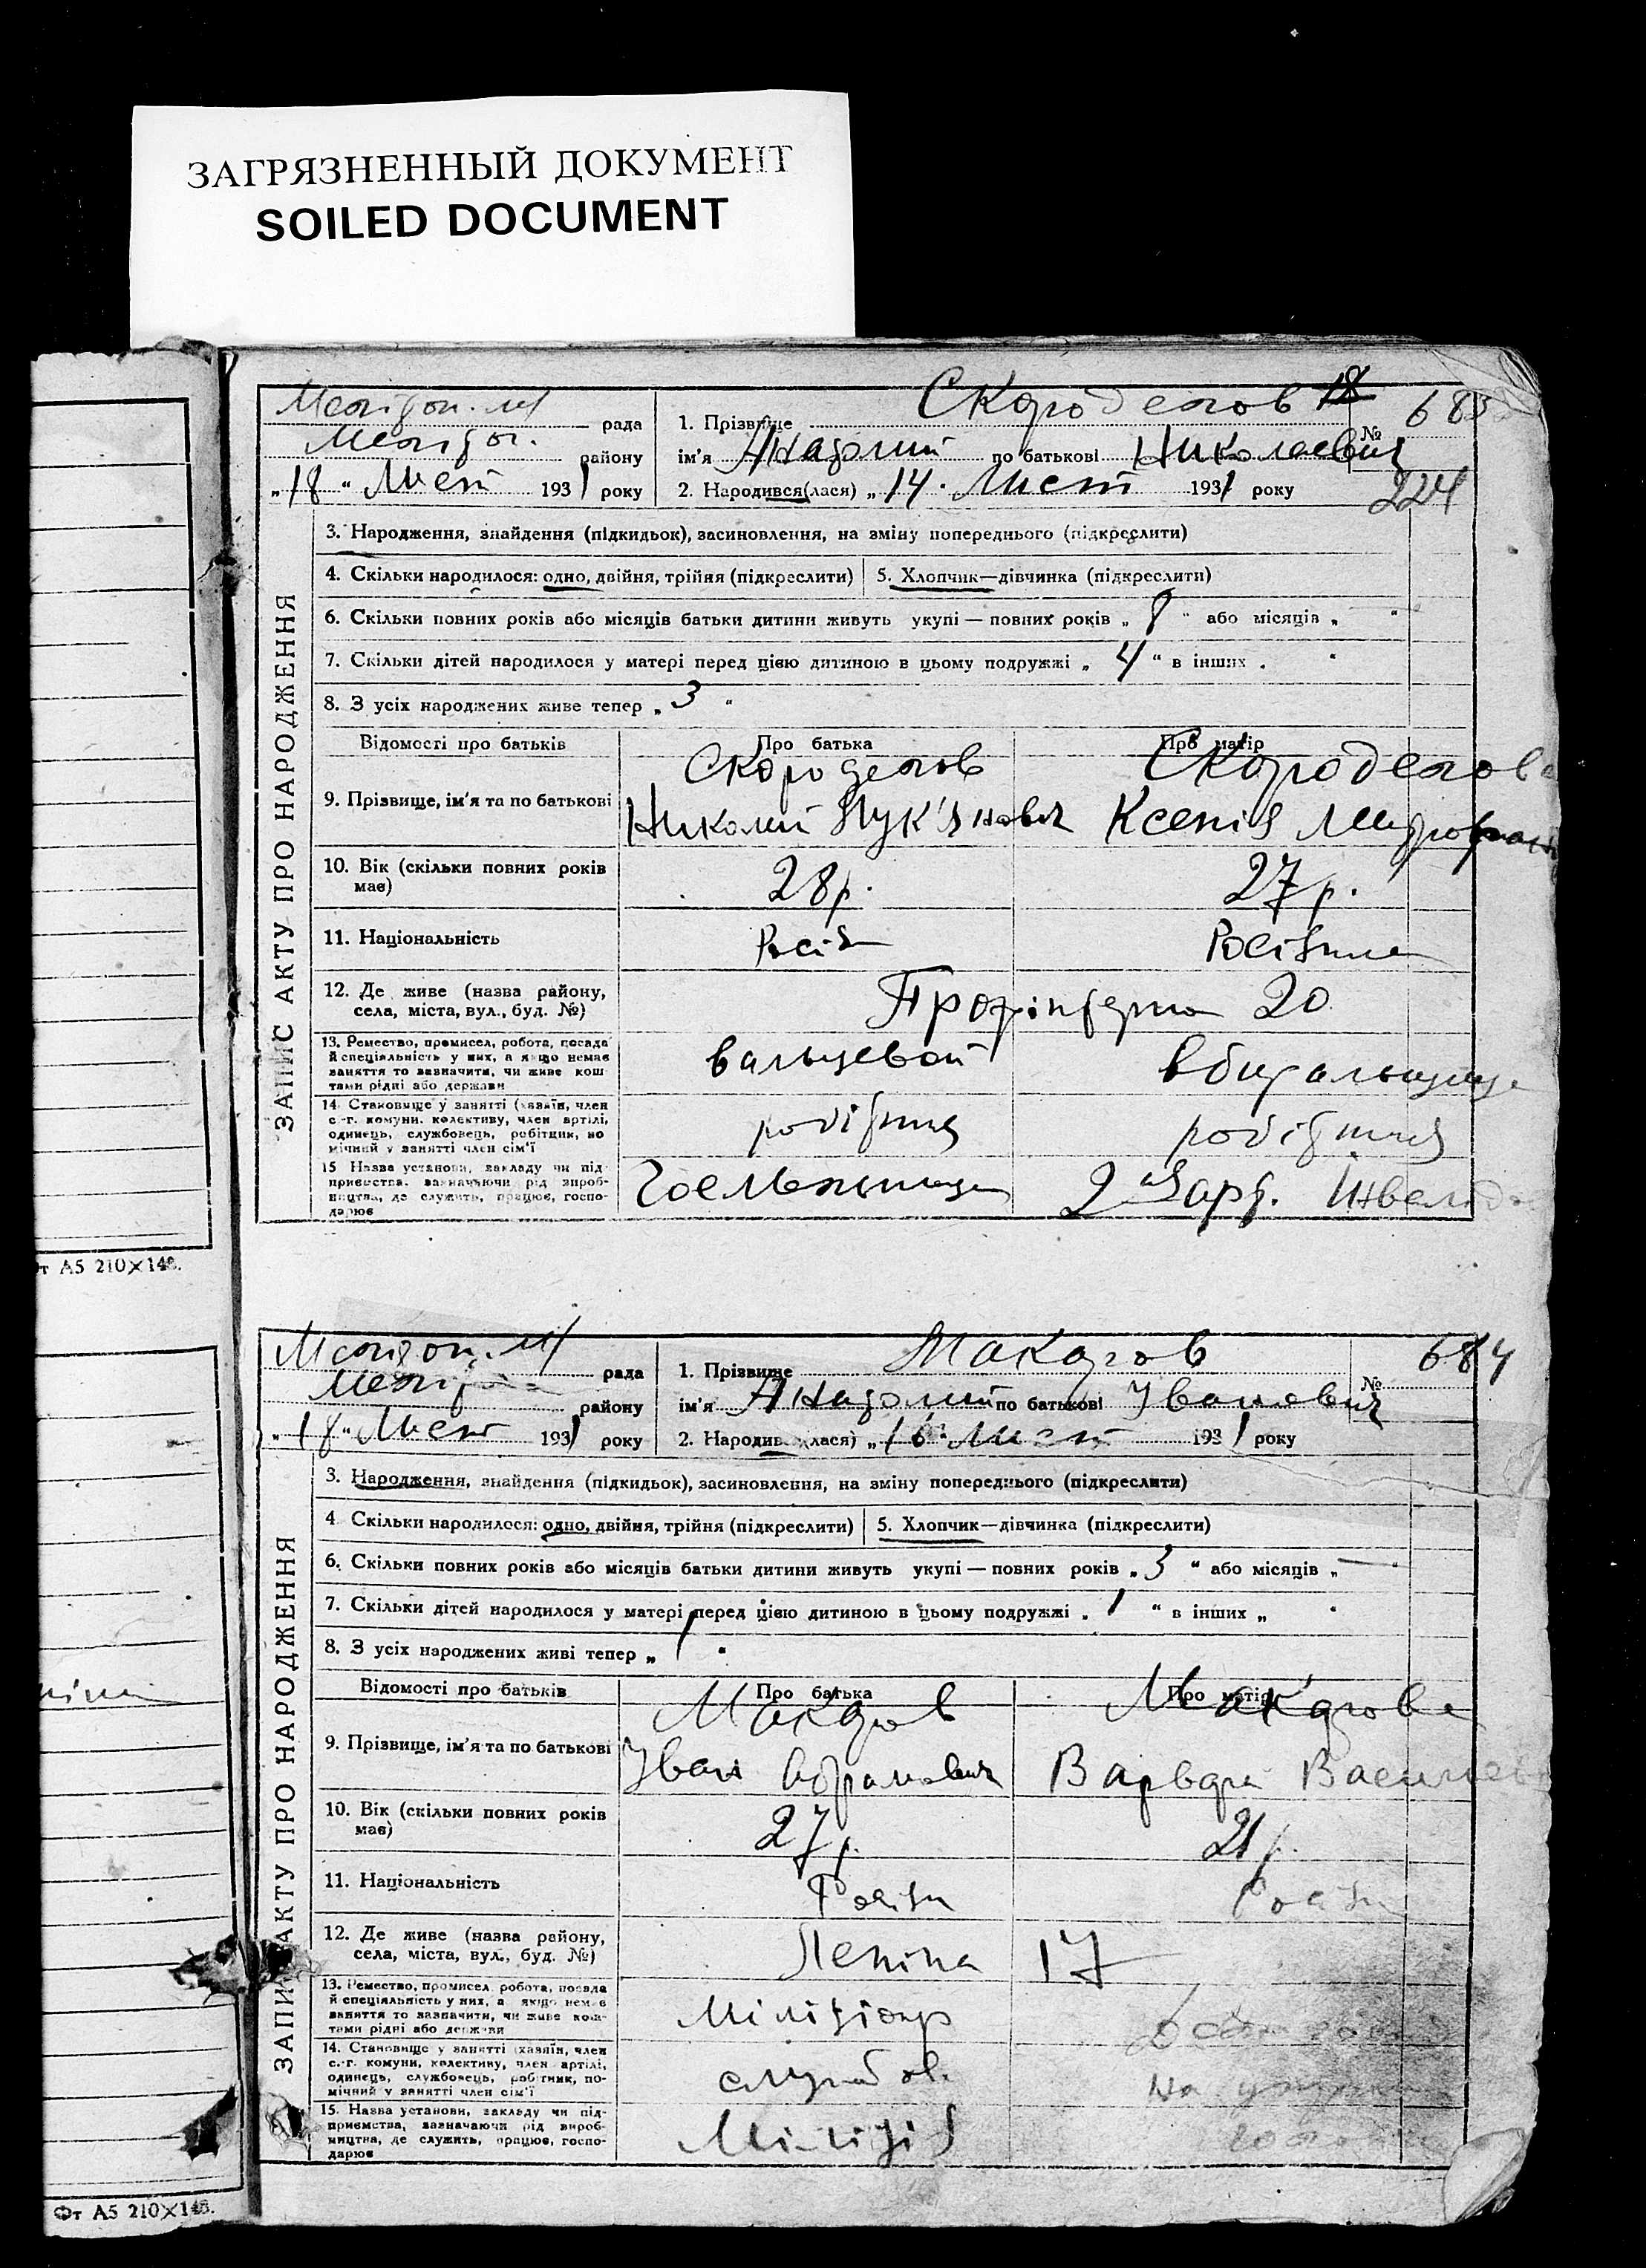 ЗАГРЯЗНЕННЫЙ ДОКУМЕНТ
SOILED DOCUMENT
рада
району
"18" Лист 1931 року
1. Прізвище
№ 683
ім'я Анатолий по батькові Николаевич
2. Народився(лася) „14. Лист 1931 року
224
ЗАПИС АКТУ ПРО НАРОДЖЕННЯ
3. Народження, знайдення (підкидьок), засиновлення, на зміну попереднього (підкреслити)
4. Скільки народилося: одно, двійня, трійня (підкреслити)
5. Хлопчик—дівчинка (підкреслити)
6. Скільки повних років або місяців батьки дитини живуть укупі — повних років „ 8 " або місяців „ — "
7. Скільки дітей народилося у матері перед цією дитиною в цьому подружжі „ 4 " в інших
8. З усіх народжених живе тепер „ 3 "
Відомості про батьків
Про батька
Про матір
9. Прізвище, ім'я та по батькові
Николай Лук'янович
Ксенія
10. Вік (скільки повних років має)
28 р.
27 р.
11. Національність
12. Де живе (назва району, села, міста, вул., буд. №)
Профінтерна 20
13. Ремество, промисел, робота, посада й спеціяльність у них, а якщо немає заняття то зазначити, чи живе коштами рідні або держави
вальцевой
14. Становище у занятті (хазяїн, член с.-г. комуни, колективу, член артілі, одинець, службовець, робітник, помічний у занятті член сім'ї
робітник
15. Назва установи, закладу чи підприємства, зазначаючи рід виробництва, де служить, працює, господарює
т А5 210×148.
рада
району
„18" Лист 1931 року
1. Прізвище Макаров
№ 684
ім'я Анатолий по батькові Іванович
2. Народив(лася) „16" Лист 1931 року
ЗАПИС АКТУ ПРО НАРОДЖЕННЯ
3. Народження, знайдення (підкидьок), засиновлення, на зміну попереднього (підкреслити)
4. Скільки народилося: одно, двійня, трійня (підкреслити)
5. Хлопчик—дівчинка (підкреслити)
6. Скільки повних років або місяців батьки дитини живуть укупі — повних років „ 3 " або місяців „ —
7. Скільки дітей народилося у матері перед цією дитиною в цьому подружжі „ 1 " в інших „
8. З усіх народжених живі тепер „ 1 "
Відомості про батьків
Про батька
Про матір
Макаров
Макарова
9. Прізвище, ім'я та по батькові
Іван Абрамович
Варвара
10. Вік (скільки повних років має)
27 р.
21 р.
11. Національність
12. Де живе (назва району, села, міста, вул., буд. №)
Леніна 17
13. Ремество, промисел, робота, посада й спеціяльність у них, а якщо немає заняття то зазначити, чи живе коштами рідні або держави
Міліціонер
14. Становище у занятті (хазяїн, член с.-г. комуни, колективу, член артілі, одинець, службовець, робітник, помічний у занятті член сім'ї
службов.
15. Назва установи, закладу чи підприємства, зазначаючи рід виробництва, де служить, працює, господарює
Міліція
Фт А5 210×148.